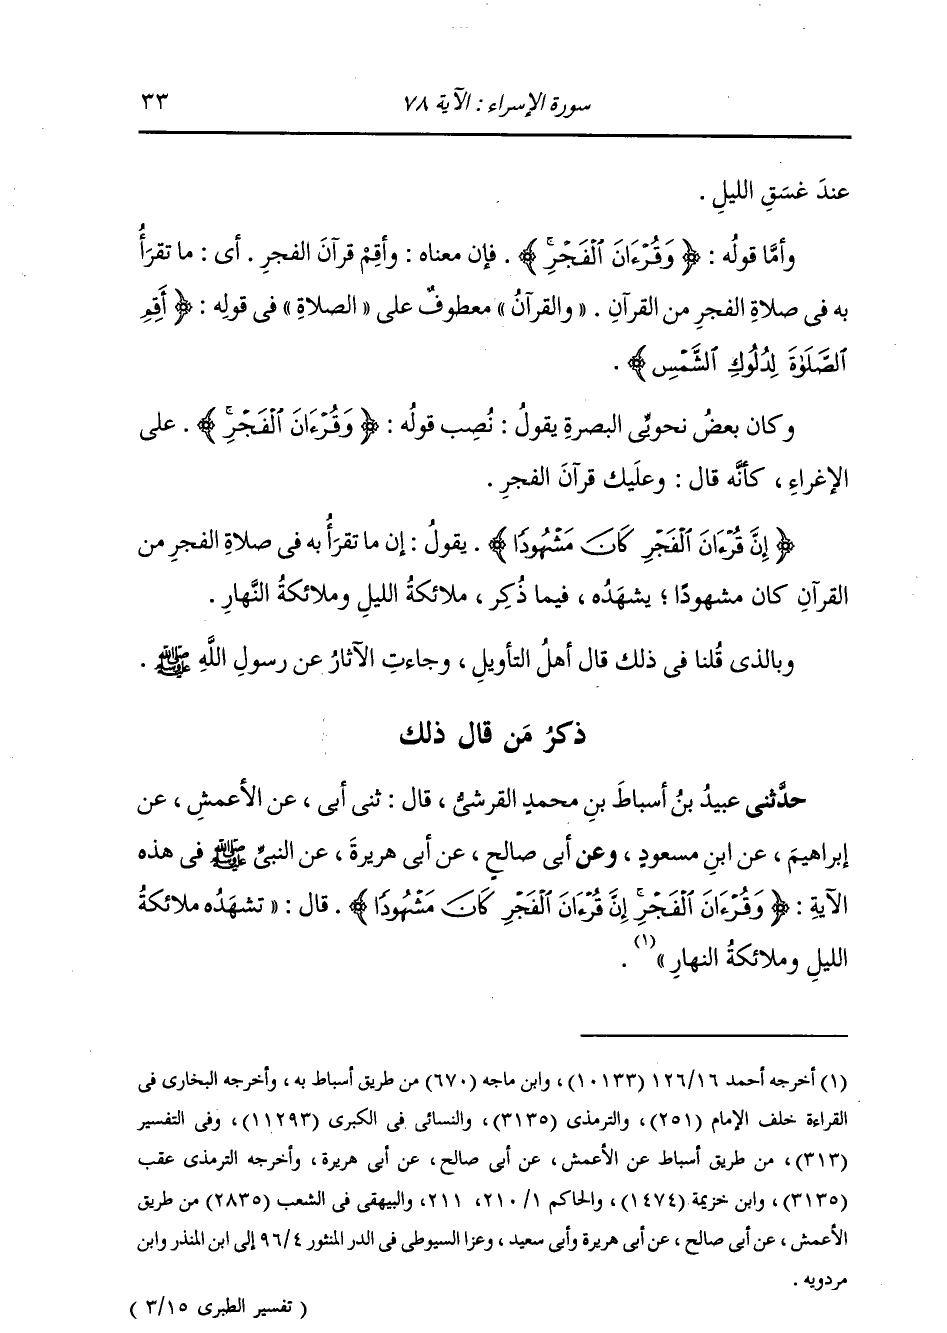 سورة الإسراء : الآية ٧٨ ٣٣
عندَ غسَقِ الليلِ .
وأمَّا قولُه : ﴿ وَقُرْءَانَ ٱلْفَجْرِ ۖ ﴾ . فإن معناه : وأقِمْ قرآنَ الفجرِ . أى : ما تقرَأُ
به فى صلاةِ الفجرِ من القرآنِ . « والقرآنُ » معطوفٌ على « الصلاةِ » فى قولِه : ﴿ أَقِمِ
ٱلصَّلَوٰةَ لِدُلُوكِ ٱلشَّمْسِ ﴾ .
وكان بعضُ نحويِّى البصرةِ يقولُ : نُصِب قولُه : ﴿ وَقُرْءَانَ ٱلْفَجْرِ ۖ ﴾ . على
الإغراءِ ، كأنَّه قال : وعلَيك قرآنَ الفجرِ .
﴿ إِنَّ قُرْءَانَ ٱلْفَجْرِ كَانَ مَشْهُودًا ﴾ . يقولُ : إن ما تقرَأُ به فى صلاةِ الفجرِ من
القرآنِ كان مشهودًا ؛ يشهَدُه ، فيما ذُكِر ، ملائكةُ الليلِ وملائكةُ النَّهارِ .
وبالذى قُلنا فى ذلك قال أهلُ التأويلِ ، وجاءتِ الآثارُ عن رسولِ اللَّهِ ﷺ .
ذكرُ مَن قال ذلك
حدَّثنى عبيدُ بنُ أسباطَ بنِ محمدٍ القرشىُّ ، قال : ثنى أبى ، عن الأعمشِ ، عن
إبراهيمَ ، عن ابنِ مسعودٍ ، وعن أبى صالحٍ ، عن أبى هريرةَ ، عن النبىِّ ﷺ فى هذه
الآيةِ : ﴿ وَقُرْءَانَ ٱلْفَجْرِ ۖ إِنَّ قُرْءَانَ ٱلْفَجْرِ كَانَ مَشْهُودًا ﴾ . قال : « تشهَدُه ملائكةُ
الليلِ وملائكةُ النهارِ » (١) .
(١) أخرجه أحمد ١٢٦/١٦ (١٠١٣٣) ، وابن ماجه (٦٧٠) من طريق أسباط به ، وأخرجه البخارى فى
القراءة خلف الإمام (٢٥١) ، والترمذى (٣١٣٥) ، والنسائى فى الكبرى (١١٢٩٣) ، وفى التفسير
(٣١٣) ، من طريق أسباط عن الأعمش ، عن أبى صالح ، عن أبى هريرة ، وأخرجه الترمذى عقب
(٣١٣٥) ، وابن خزيمة (١٤٧٤) ، والحاكم ٢١٠/١ ، ٢١١ ، والبيهقى فى الشعب (٢٨٣٥) من طريق
الأعمش ، عن أبى صالح ، عن أبى هريرة وأبى سعيد ، وعزا السيوطى فى الدر المنثور ٩٦/٤ إلى ابن المنذر وابن
مردويه .
( تفسير الطبرى ٣/١٥ )